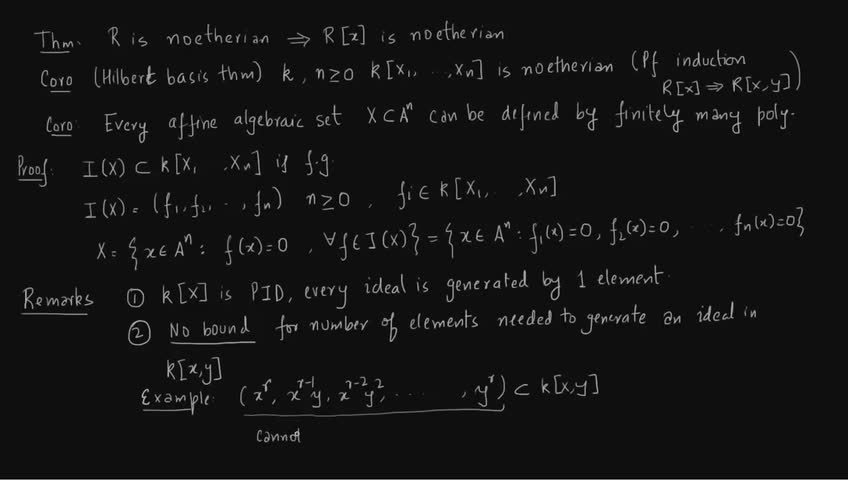 Thm: R is noetherian ⇒ R[x] is noetherian
Coro (Hilbert basis thm) k, n≥0 k[x₁, .., xₙ] is noetherian (Pf induction
R[x] ⇒ R[x,y])
Coro: Every affine algebraic set X ⊂ Aⁿ can be defined by finitely many poly.
Proof: I(X) ⊂ k[x₁ , xₙ] is f.g.
I(X) = (f₁, f₂, .., fₙ) n≥0, fi ∈ k[x₁, .., xₙ]
X = {x ∈ Aⁿ : f(x)=0, ∀f∈I(X)} = {x ∈ Aⁿ : f₁(x)=0, f₂(x)=0, ...., fₙ(x)=0}
Remarks ① k[x] is PID, every ideal is generated by 1 element.
② No bound for number of elements needed to generate an ideal in
k[x,y]
Example: (xʳ, xʳ⁻¹y, xʳ⁻²y², ....., yʳ) ⊂ k[x,y]
cannot